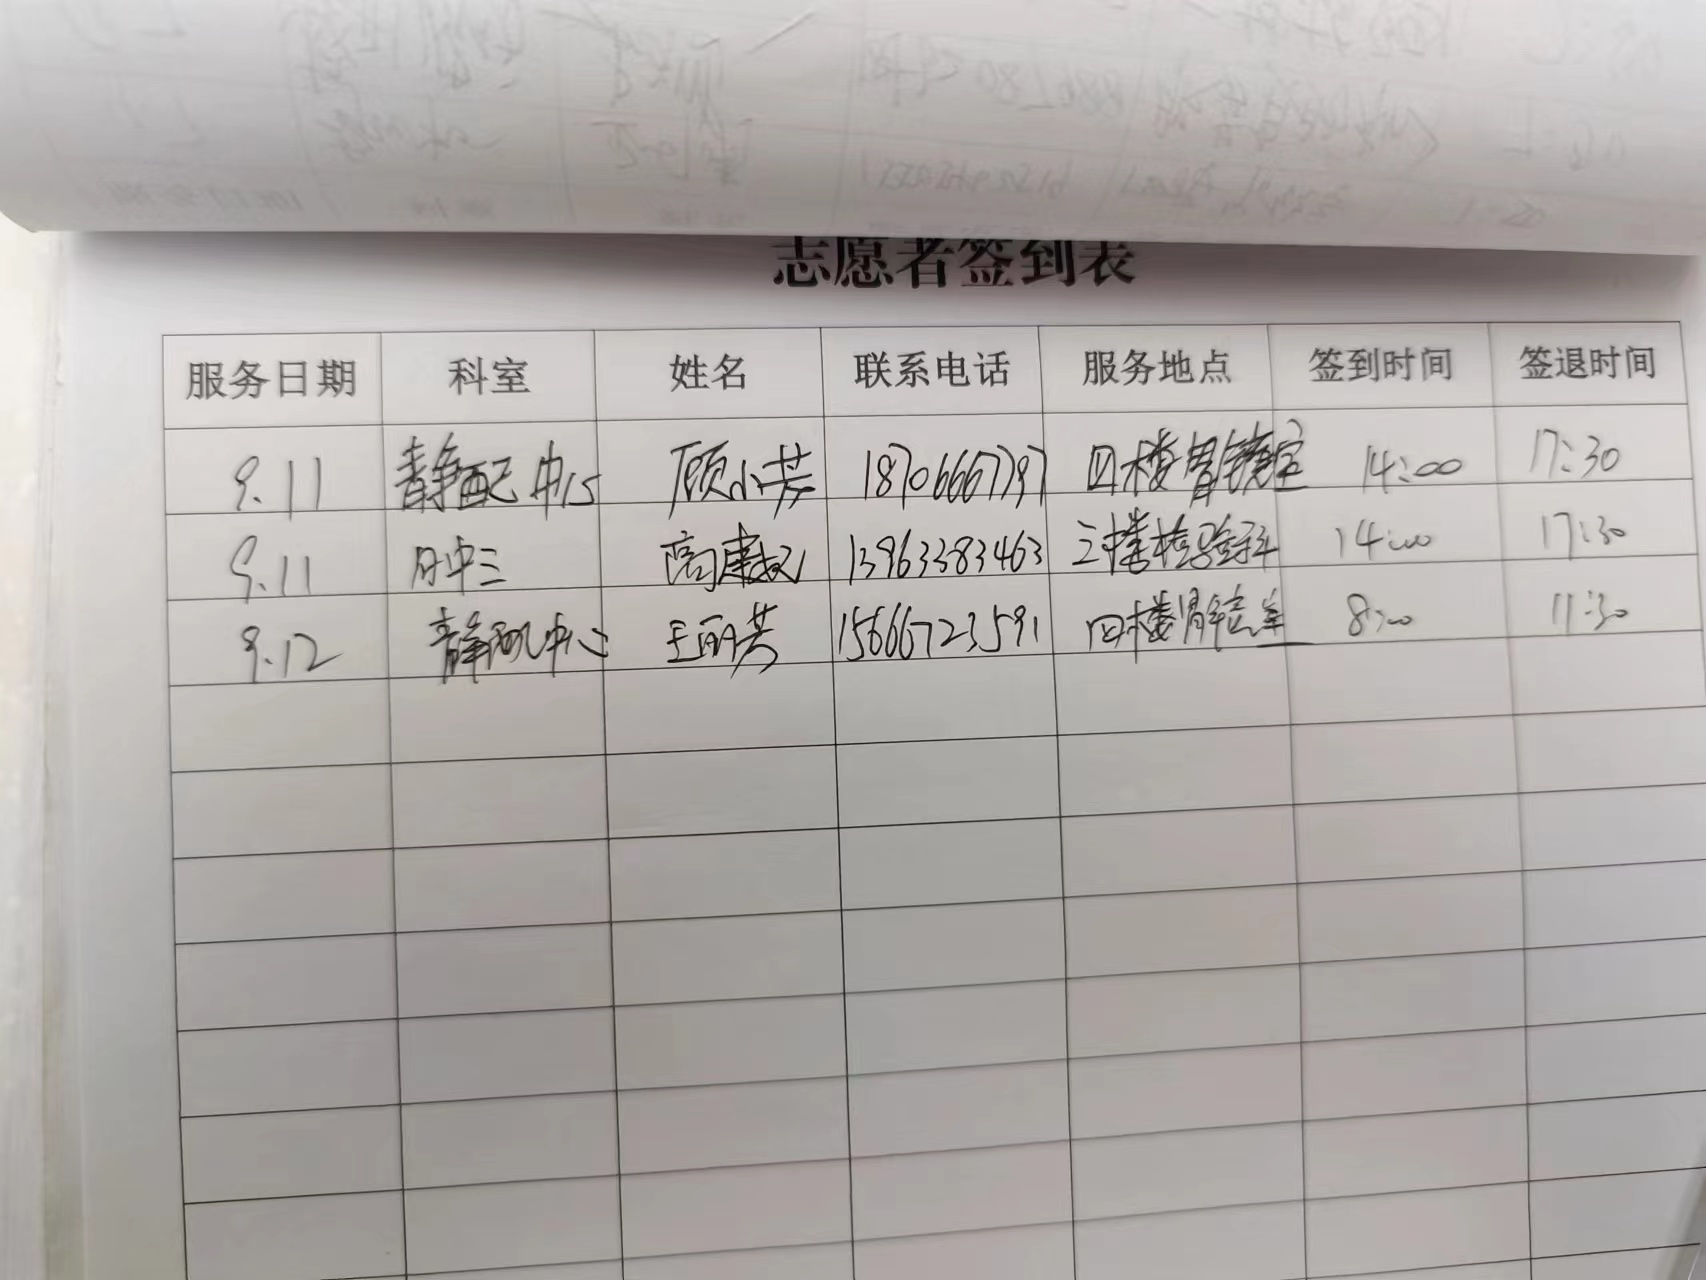 志愿者签到表
服务日期 科室 姓名 联系电话 服务地点 签到时间 签退时间
9.11 静配中心 顾小芳 18706667797 四楼胃镜室 14:00 17:30
9.11 内中三 高康 13963383463 三楼检验科 14:00 17:30
9.12 静配中心 王丽芳 15666723591 四楼胃镜室 8:00 11:30